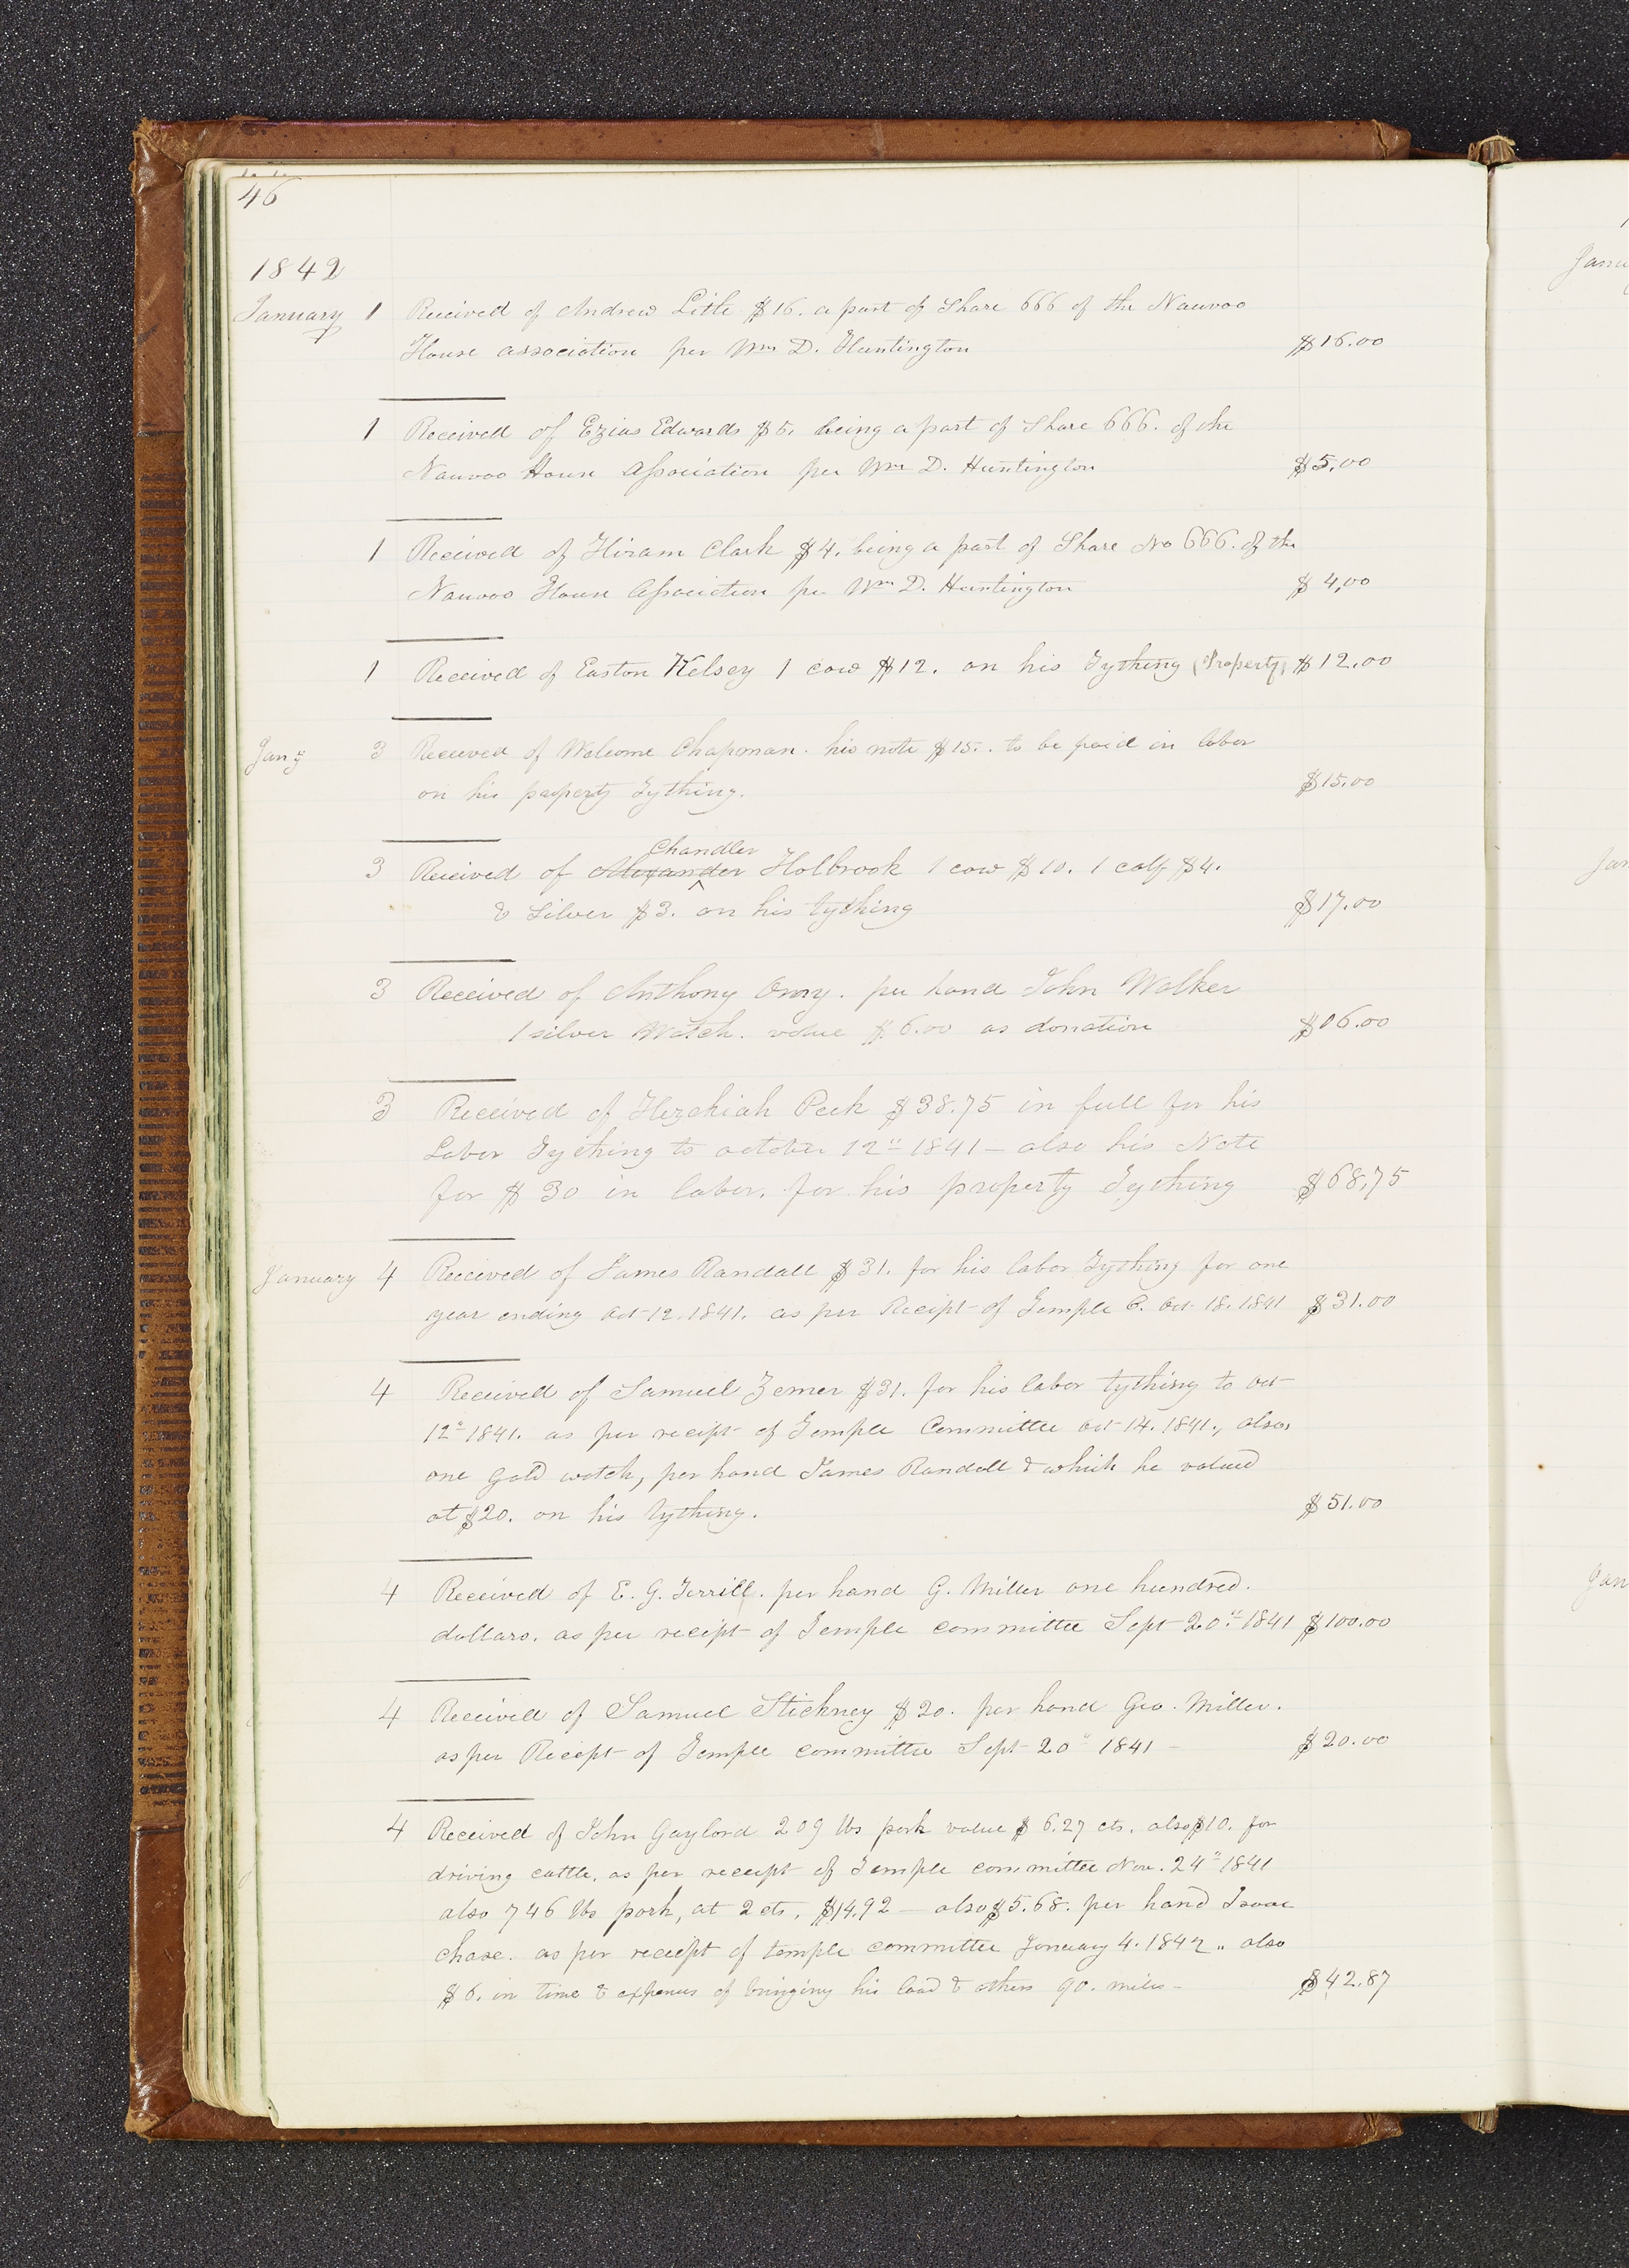 46
1842
January 1 Received of Andrew Litle $16. a part of Share 666 of the Nauvoo
House association per Wm D. Huntington $16.00
1 Received of Ezias Edwards $5. being a part of Share 666. of the
Nauvoo House Association per Wm D. Huntington $5,00
1 Received of Hiram Clark $4. being a part of Share No 666. of the
Nauvoo House Association per Wm D. Huntington $4,00
1 Received of Easton Kelsey 1 cow $12. on his Tything (Property) $12.00
Jany 3 Received of Welcome Chapman. his note $15.. to be paid in labor
on his property Tything. $15.00
Chandler
3 Received of Alexander Holbrook 1 cow $10. 1 calf $4.
& Silver $3. on his tything $17.00
3 Received of Anthony. per hand John Walker
1 silver Watch. value $6.00 as donation $06.00
3 Received of Hezekiah Peck $38.75 in full for his
Labor Tything to october 12" 1841 – also his Note
for $30 in labor. for his property Tything $68,75
January 4 Received of James Randall $31. for his labor Tything for one
year ending Oct 12. 1841. as per Receipt of Temple C. Oct. 18. 1841 $31.00
4 Received of Samuel Zemer $31. for his labor tything to Oct
12" 1841. as per receipt of Temple Committee Oct 14. 1841., also,
one gold watch, per hand James Randall & which he valued
at $20. on his tything. $51.00
4 Received of E. G. Terrill. per hand G. Miller one hundred.
dollars. as per receipt of Temple committee Sept 20" 1841 $100.00
4 Received of Samuel Stickney $20. per hand Geo. Miller.
as per Receipt of Temple committee Sept 20" 1841 – $20.00
4 Received of John Gaylord 209 lbs pork value $6.27 cts. also $10. for
driving cattle. as per receipt of Temple committee Nov. 24" 1841
also 746 lbs pork, at 2 cts, $14.92 – also $5.68. per hand Isaac
chase. as per receipt of temple committee January 4. 1842,, also
$6. in time & expenses of bringing his load & others 90. miles – $42.87
Janu
Jan
Jan